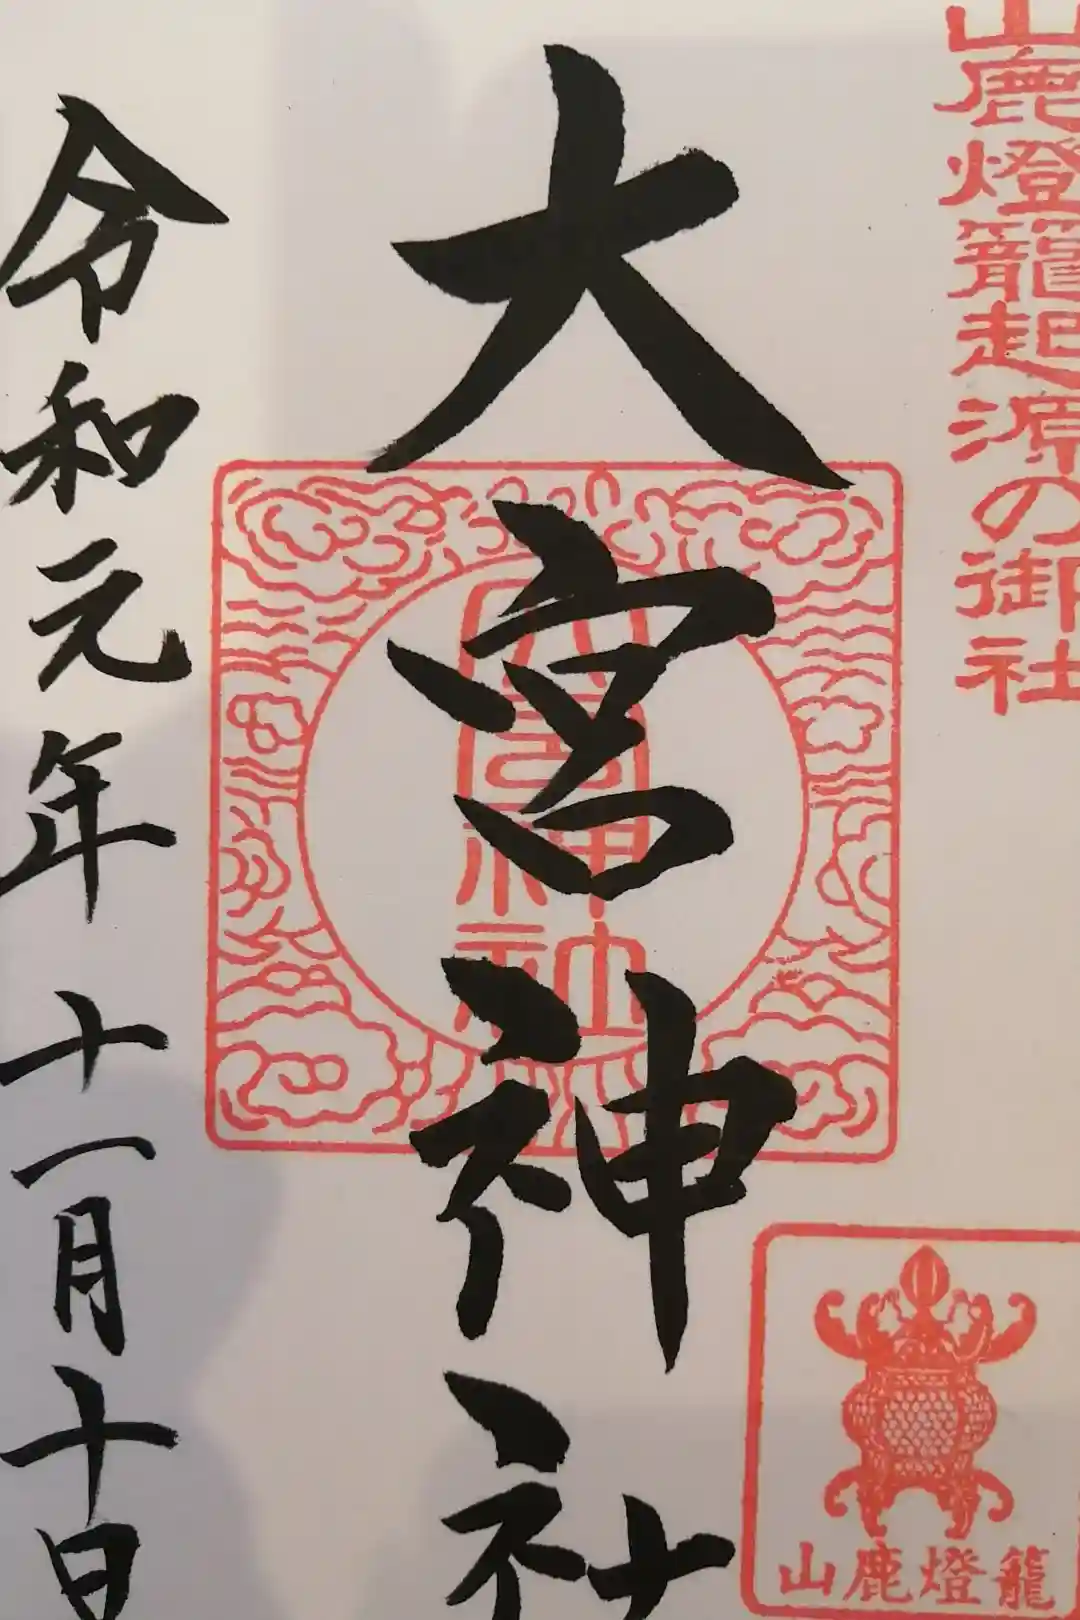 山鹿燈籠起源の御社
大宮神社
大宮神社
山鹿燈籠
令和元年十一月十日